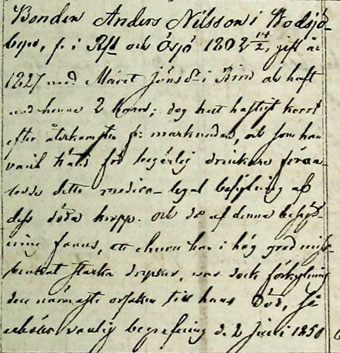 Bonden Anders Nilsson i Stodsjö-
byn, f. i Rft och Åsjö 1802 14/12, gift år
1827 med Märet Jönsd: i Rörön ab haft
med henne 2 barn; dog helt hastigt
efter återkomsten fr: marknaden, ab som han
varit känd för begärlig drinkare föran-
ledde detta medico-legal besigtning af
dess döda kropp. och då af denna besigt-
ning fanns, att ehuru han i hög grad miss-
brukat starka drycker, var dock förkylning
den närmaste orsaken till hans död, så
erhöll vanlig begrafning d. 2 Juni 1850